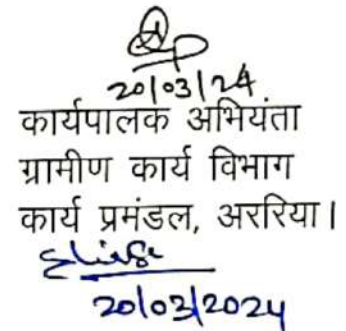 20/03/24
कार्यपालक अभियंता
ग्रामीण कार्य विभाग
कार्य प्रमंडल, अररिया।
20/03/2024